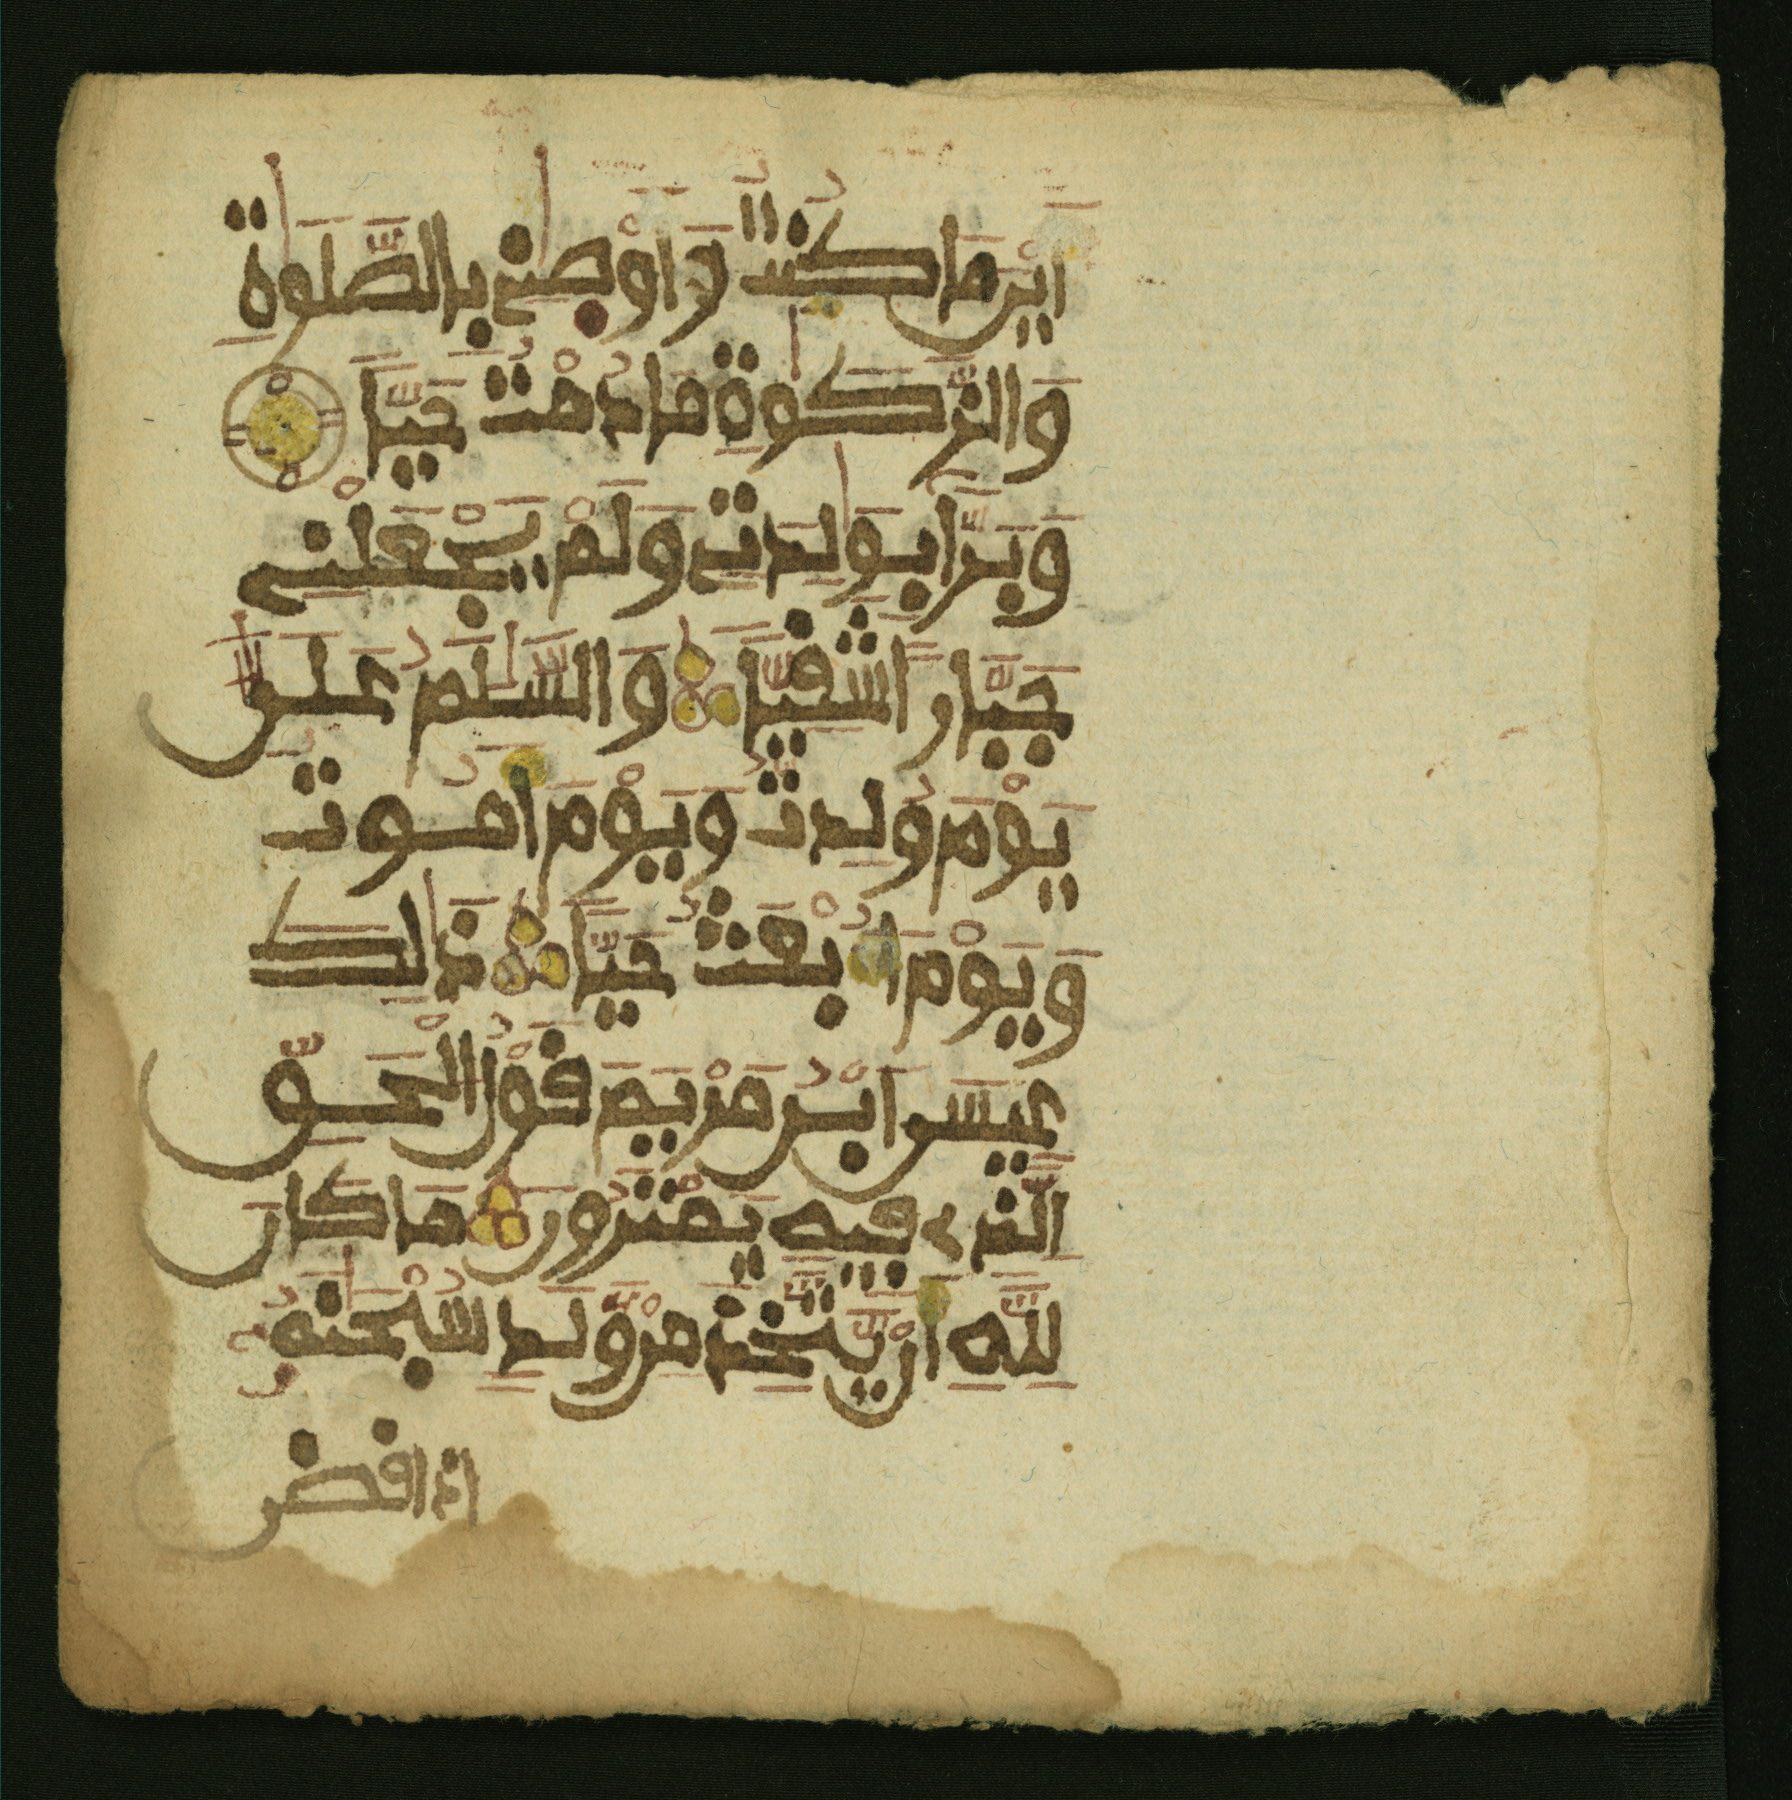 أَيْنَ مَا كُنتُ وَأَوْصَٰنِے بِالصَّلَوٰةِ
وَالزَّكَوٰةِ مَا دُمْتُ حَيّاً
وَبَرّاً بِوَٰلِدَتِے وَلَمْ يَجْعَلْنِے
جَبَّاراً شَفِيّاً وَالسَّلَٰمُ عَلَىَّ
يَوْمَ وُلِدتُّ وَيَوْمَ أَمُوتُ
وَيَوْمَ أُبْعَثُ حَيّاً ذَٰلِكَ
عِيسَى ابْنُ مَرْيَمَ قَوْلُ الْحَقِّ
الَّذِے فِيهِ يَمْتَرُونَ مَا كَانَ
لِلَّهِ أَنْ يَّتَّخِذَ مِنْ وَّلَدٍ سُبْحَٰنَهُۥ
اذا قضى